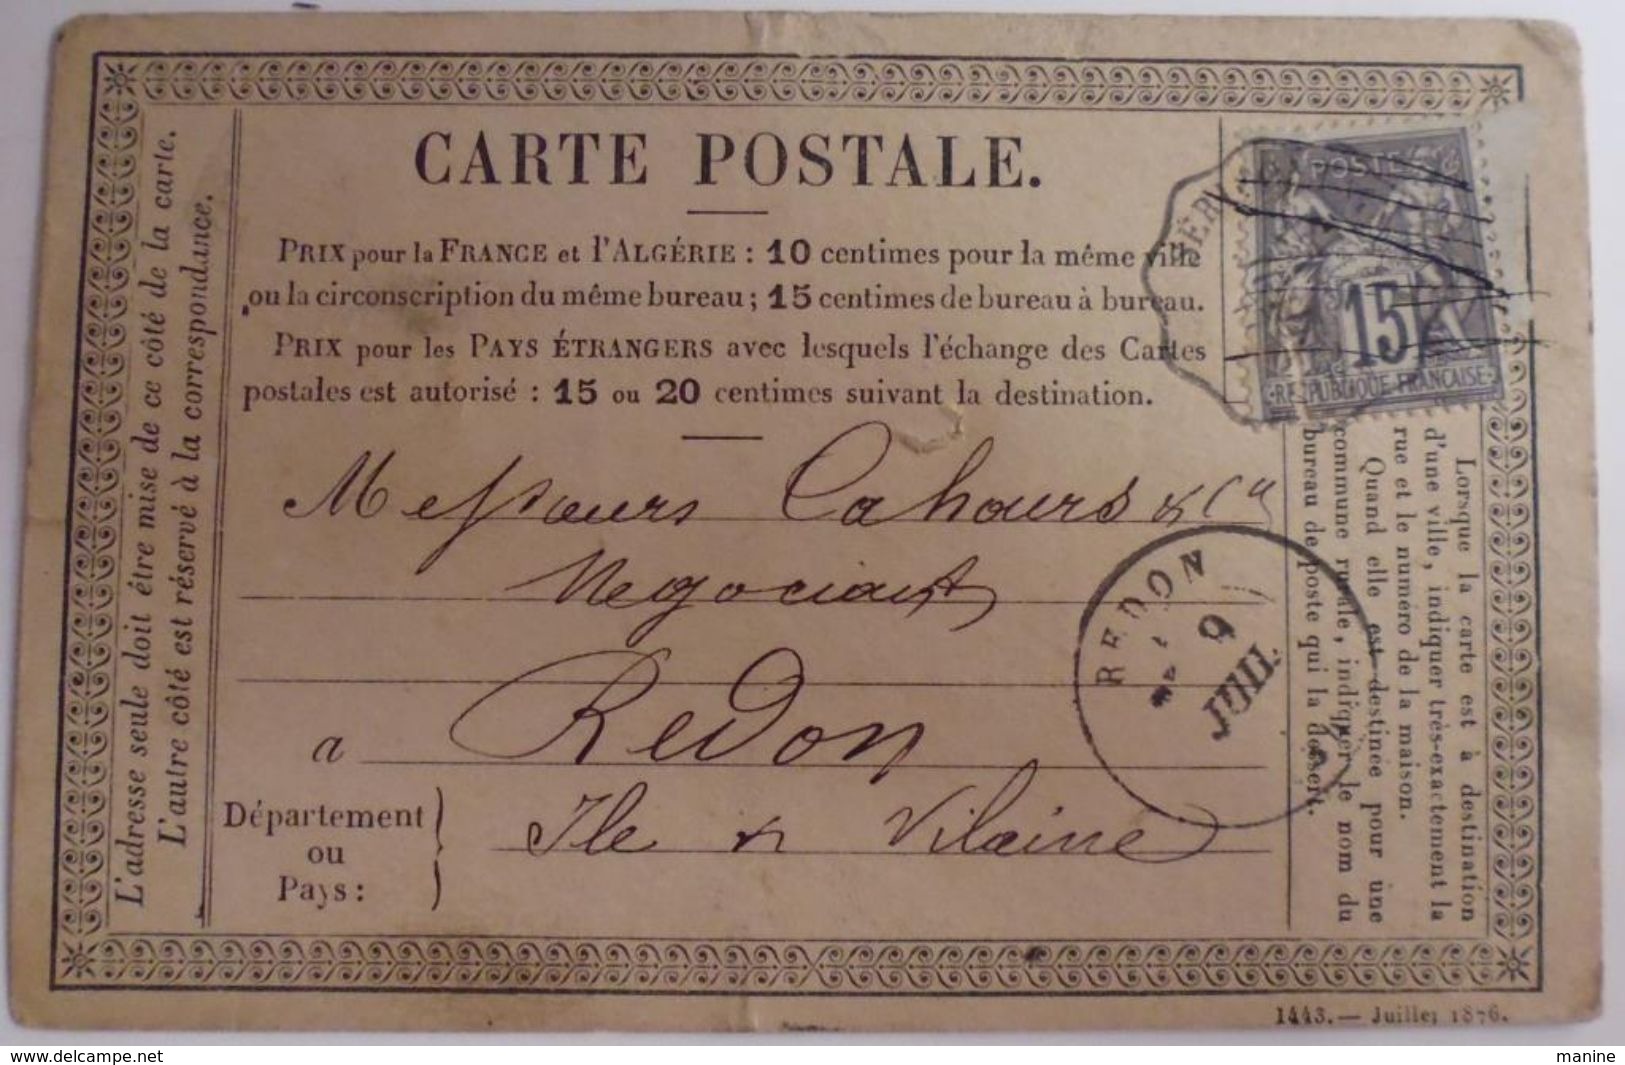 CARTE POSTALE.
PRIX pour la FRANCE et l'ALGÉRIE : 10 centimes pour la même ville
ou la circonscription du même bureau ; 15 centimes de bureau à bureau.
PRIX pour les PAYS ÉTRANGERS avec lesquels l'échange des Cartes
postales est autorisé : 15 ou 20 centimes suivant la destination.
L'adresse seule doit être mise de ce côté de la carte.
L'autre côté est réservé à la correspondance.
POSTE
15
REPUBLIQUE FRANÇAISE
Messieurs Cahours & Cie
Negociant
à Redon
Département
ou
Pays :
Ile & Vilaine
REDON
9
JUIL.
Lorsque la carte est à destination
d'une ville, indiquer très-exactement la
rue et le numéro de la maison.
Quand elle est destinée pour une
commune rurale, indiquer le nom du
bureau de poste qui la dessert.
1443.— Juillet 1876.
www.delcampe.net
manine